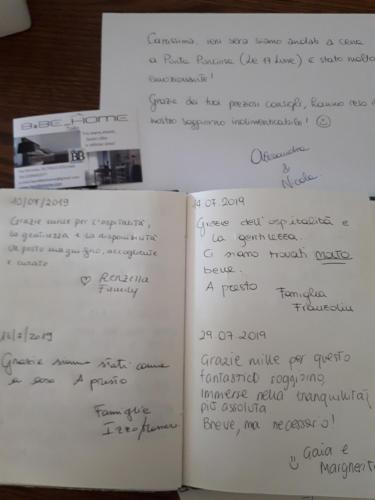 Carissima, ieri sera siamo andati a cena
a Punta Prosciutto (Le 17 Lune) è stato molto
emozionante!
Grazie dei tuoi preziosi consigli, hanno reso il
nostro soggiorno indimenticabile! ☺
Alessandra
&
Nicola
B&BE_HOME
B&B
10/07/2019
Grazie mille per l'ospitalità,
la gentilezza e la disponibilità
Un posto magnifico, accogliente
e curato
Renzella
Family
/7/2019
Grazie siamo stati come
a casa A presto
Famiglie
Izzo/
.07.2019
Grazie dell'ospitalità e
la gentilezza.
Ci siamo trovati MOLTO
bene.
A presto
Famiglia
29.07.2019
Grazie mille per questo
fantastico soggiorno,
Immerse nella tranquillità
più assoluta
Breve, ma necessario!
Gaia e
Margherita